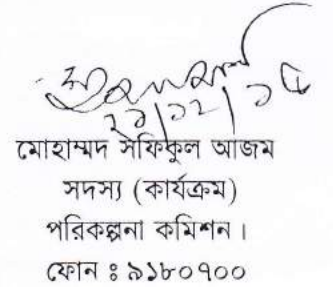 ২১/১২/১৫
মোহাম্মদ সফিকুল আজম
সদস্য (কার্যক্রম)
পরিকল্পনা কমিশন।
ফোন ঃ ৯১৮০৭০০